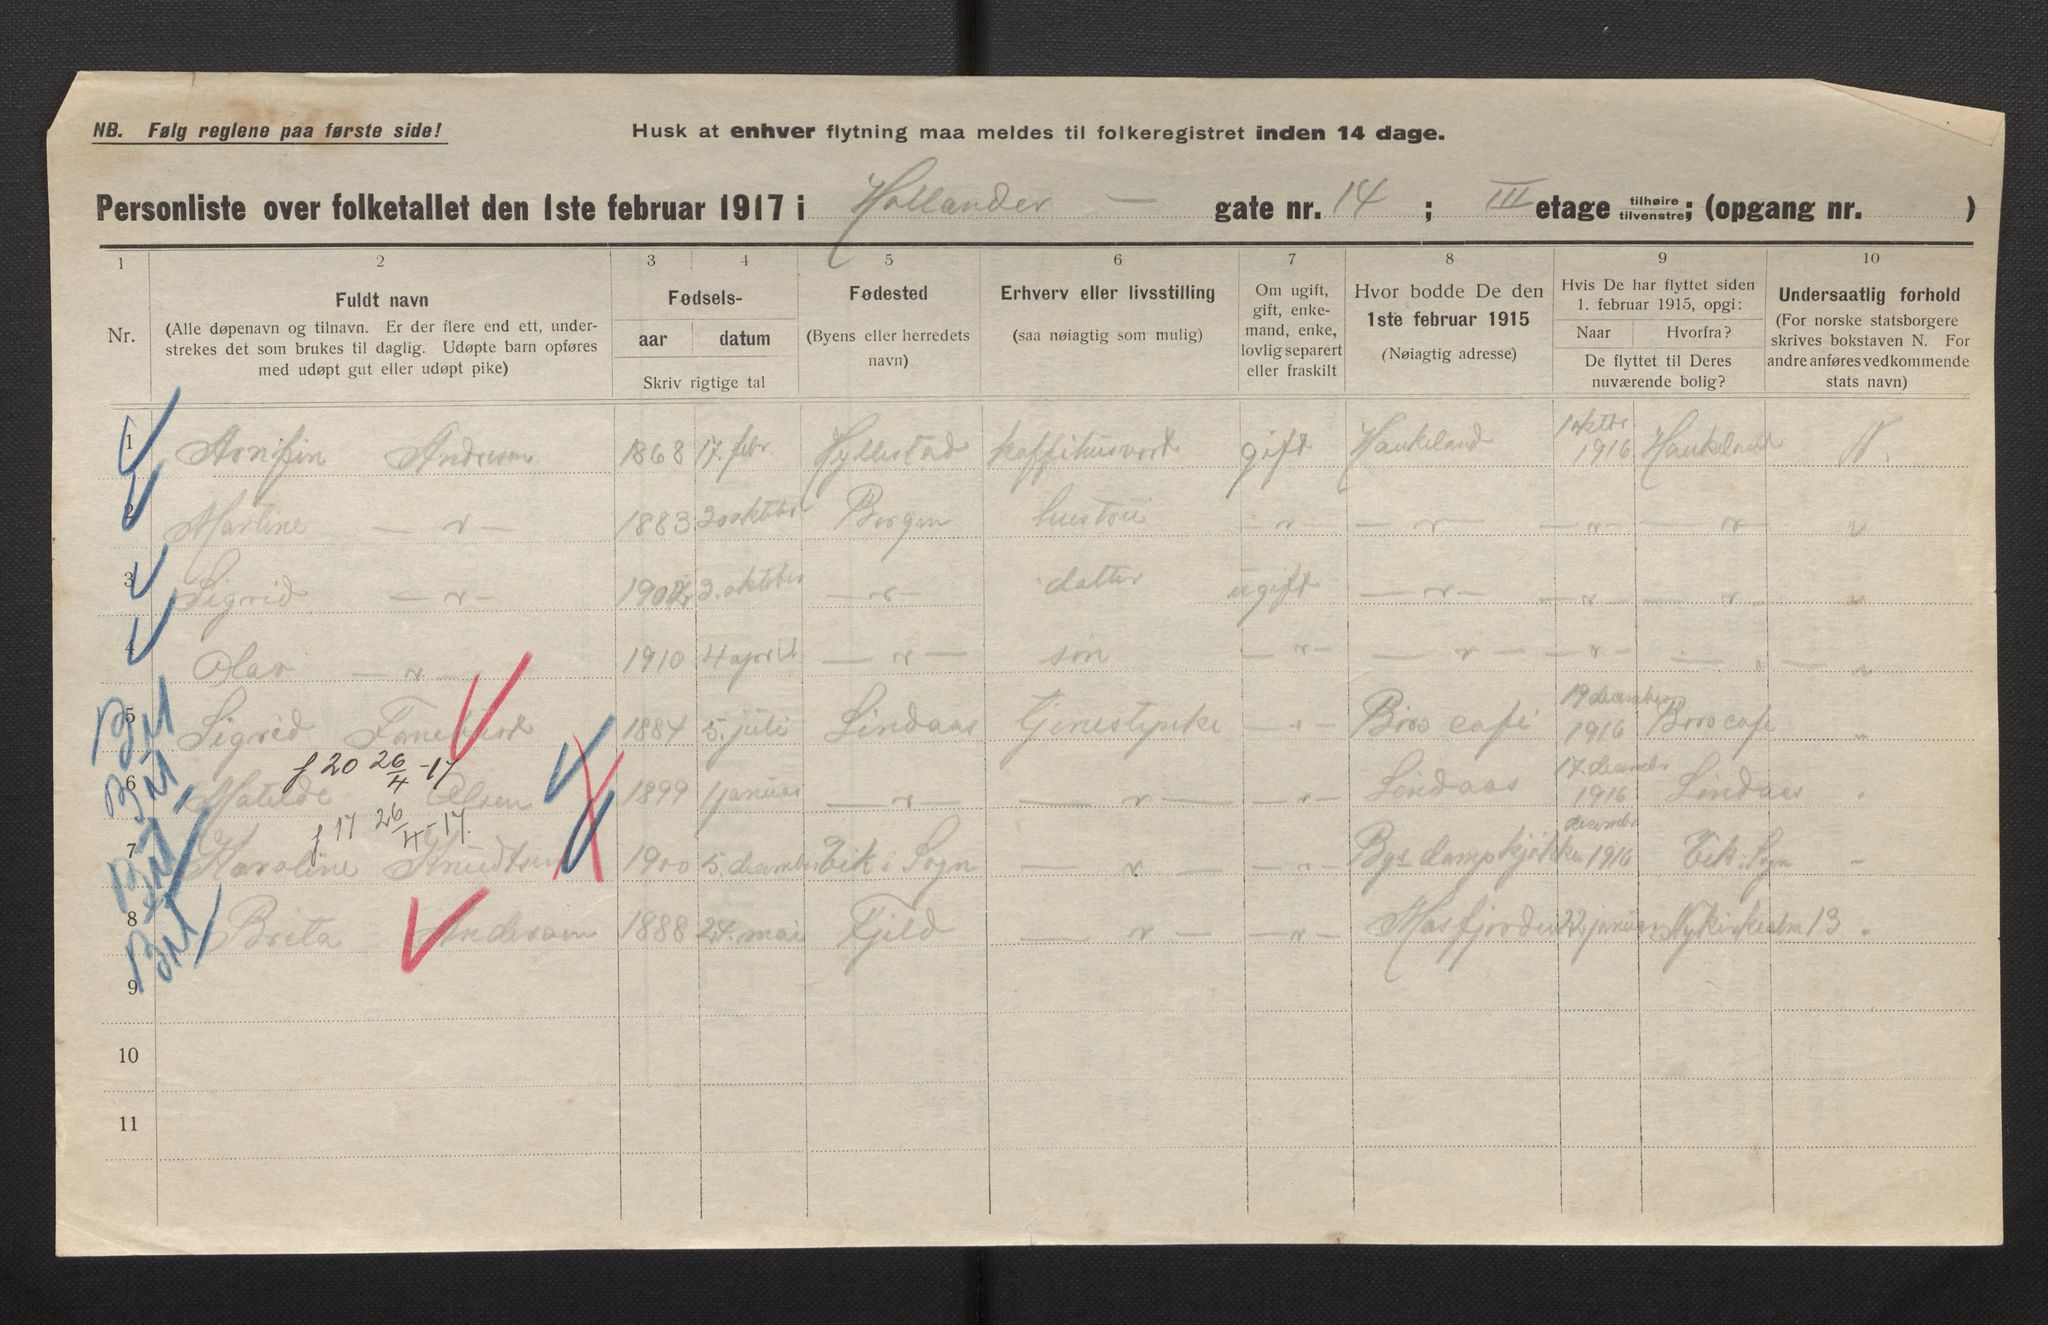 NB. Følg reglene paa første side!
Husk at enhver flytning maa meldes til folkeregistret inden 14 dage.
Personliste over folketallet den 1ste februar 1917 i Hollander — gate nr. 14 ; III etage tilhøire tilvenstre; (opgang nr. )
1 2 3 4 5 6 7 8 9 10
Nr.
Fuldt navn
(Alle døpenavn og tilnavn. Er der flere end ett, under-
strekes det som brukes til daglig. Udøpte barn opføres
med udøpt gut eller udøpt pike)
Fødsels-
aar datum
Skriv rigtige tal
Fødested
(Byens eller herredets
navn)
Erhverv eller livsstilling
(saa nøiagtig som mulig)
Om ugift,
gift, enke-
mand, enke,
lovlig separert
eller fraskilt
Hvor bodde De den
1ste februar 1915
(Nøiagtig adresse)
Hvis De har flyttet siden
1. februar 1915, opgi:
Naar Hvorfra?
De flyttet til Deres
nuværende bolig?
Undersaatlig forhold
(For norske statsborgere
skrives bokstaven N. For
andre anføres vedkommende
stats navn)
1 Andersen 1868 17. febr. Hyllestad kaffihusvert gift Haukeland 1 oktbr 1916 Haukeland N.
2 Martine — " — 1883 20 oktbr Bergen hustru — " — — " — — " — — " — "
3 Sigrid — " — 3. oktober — " — datter ugift — " — — " — — " — "
4 Olav — " — 1910 4 april — " — søn — " — — " — — " — — " — "
5 Sigrid 1884 5. juli Lindaas tjenestepike — " — Bros café 19 december 1916 Bros cafe "
f 20 26/4 -17
6 Matilde Olsen 1899 1 januar — " — — " — — " — Lindaas 17 decembr 1916 Lindaas "
f 17 26/4 -17.
7 Karoline Knudtsen 1900 5. december Vik i Sogn — " — — " — Bgs dampkjøkken decembr 1916 Vik i Sogn "
8 Brita Andersen 1888 24. mai Fjeld — " — — " — Masfjorden 22 januar Nykirkealm 13 "
9
10
11
BM
BM
BM
BM